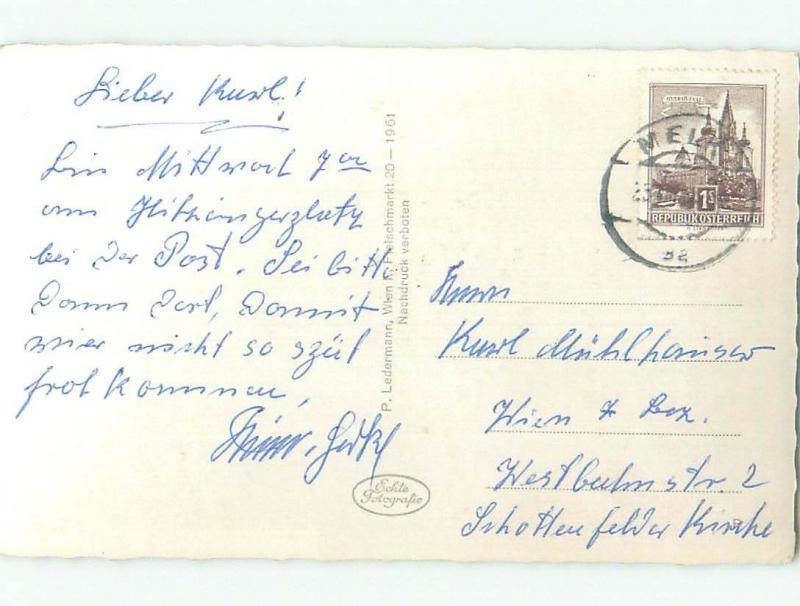 Lieber Kurl!
Bin Mittwoch 7 00
am Hitzingerplatz
bei der Post. Sei bitte
Dann Dort, Damit
wier nicht so spät
fort kommen,
P. Ledermann, Wien I., Fleischmarkt 20 — 1961
Nachdruck verboten
Echte
Fotografie
MELK
1S
REPUBLIK ÖSTERREICH
Herrn
Kurl Mühlhauser
Wien 7 Bez.
Westbahnstr. 2
Schottenfelder Kirche